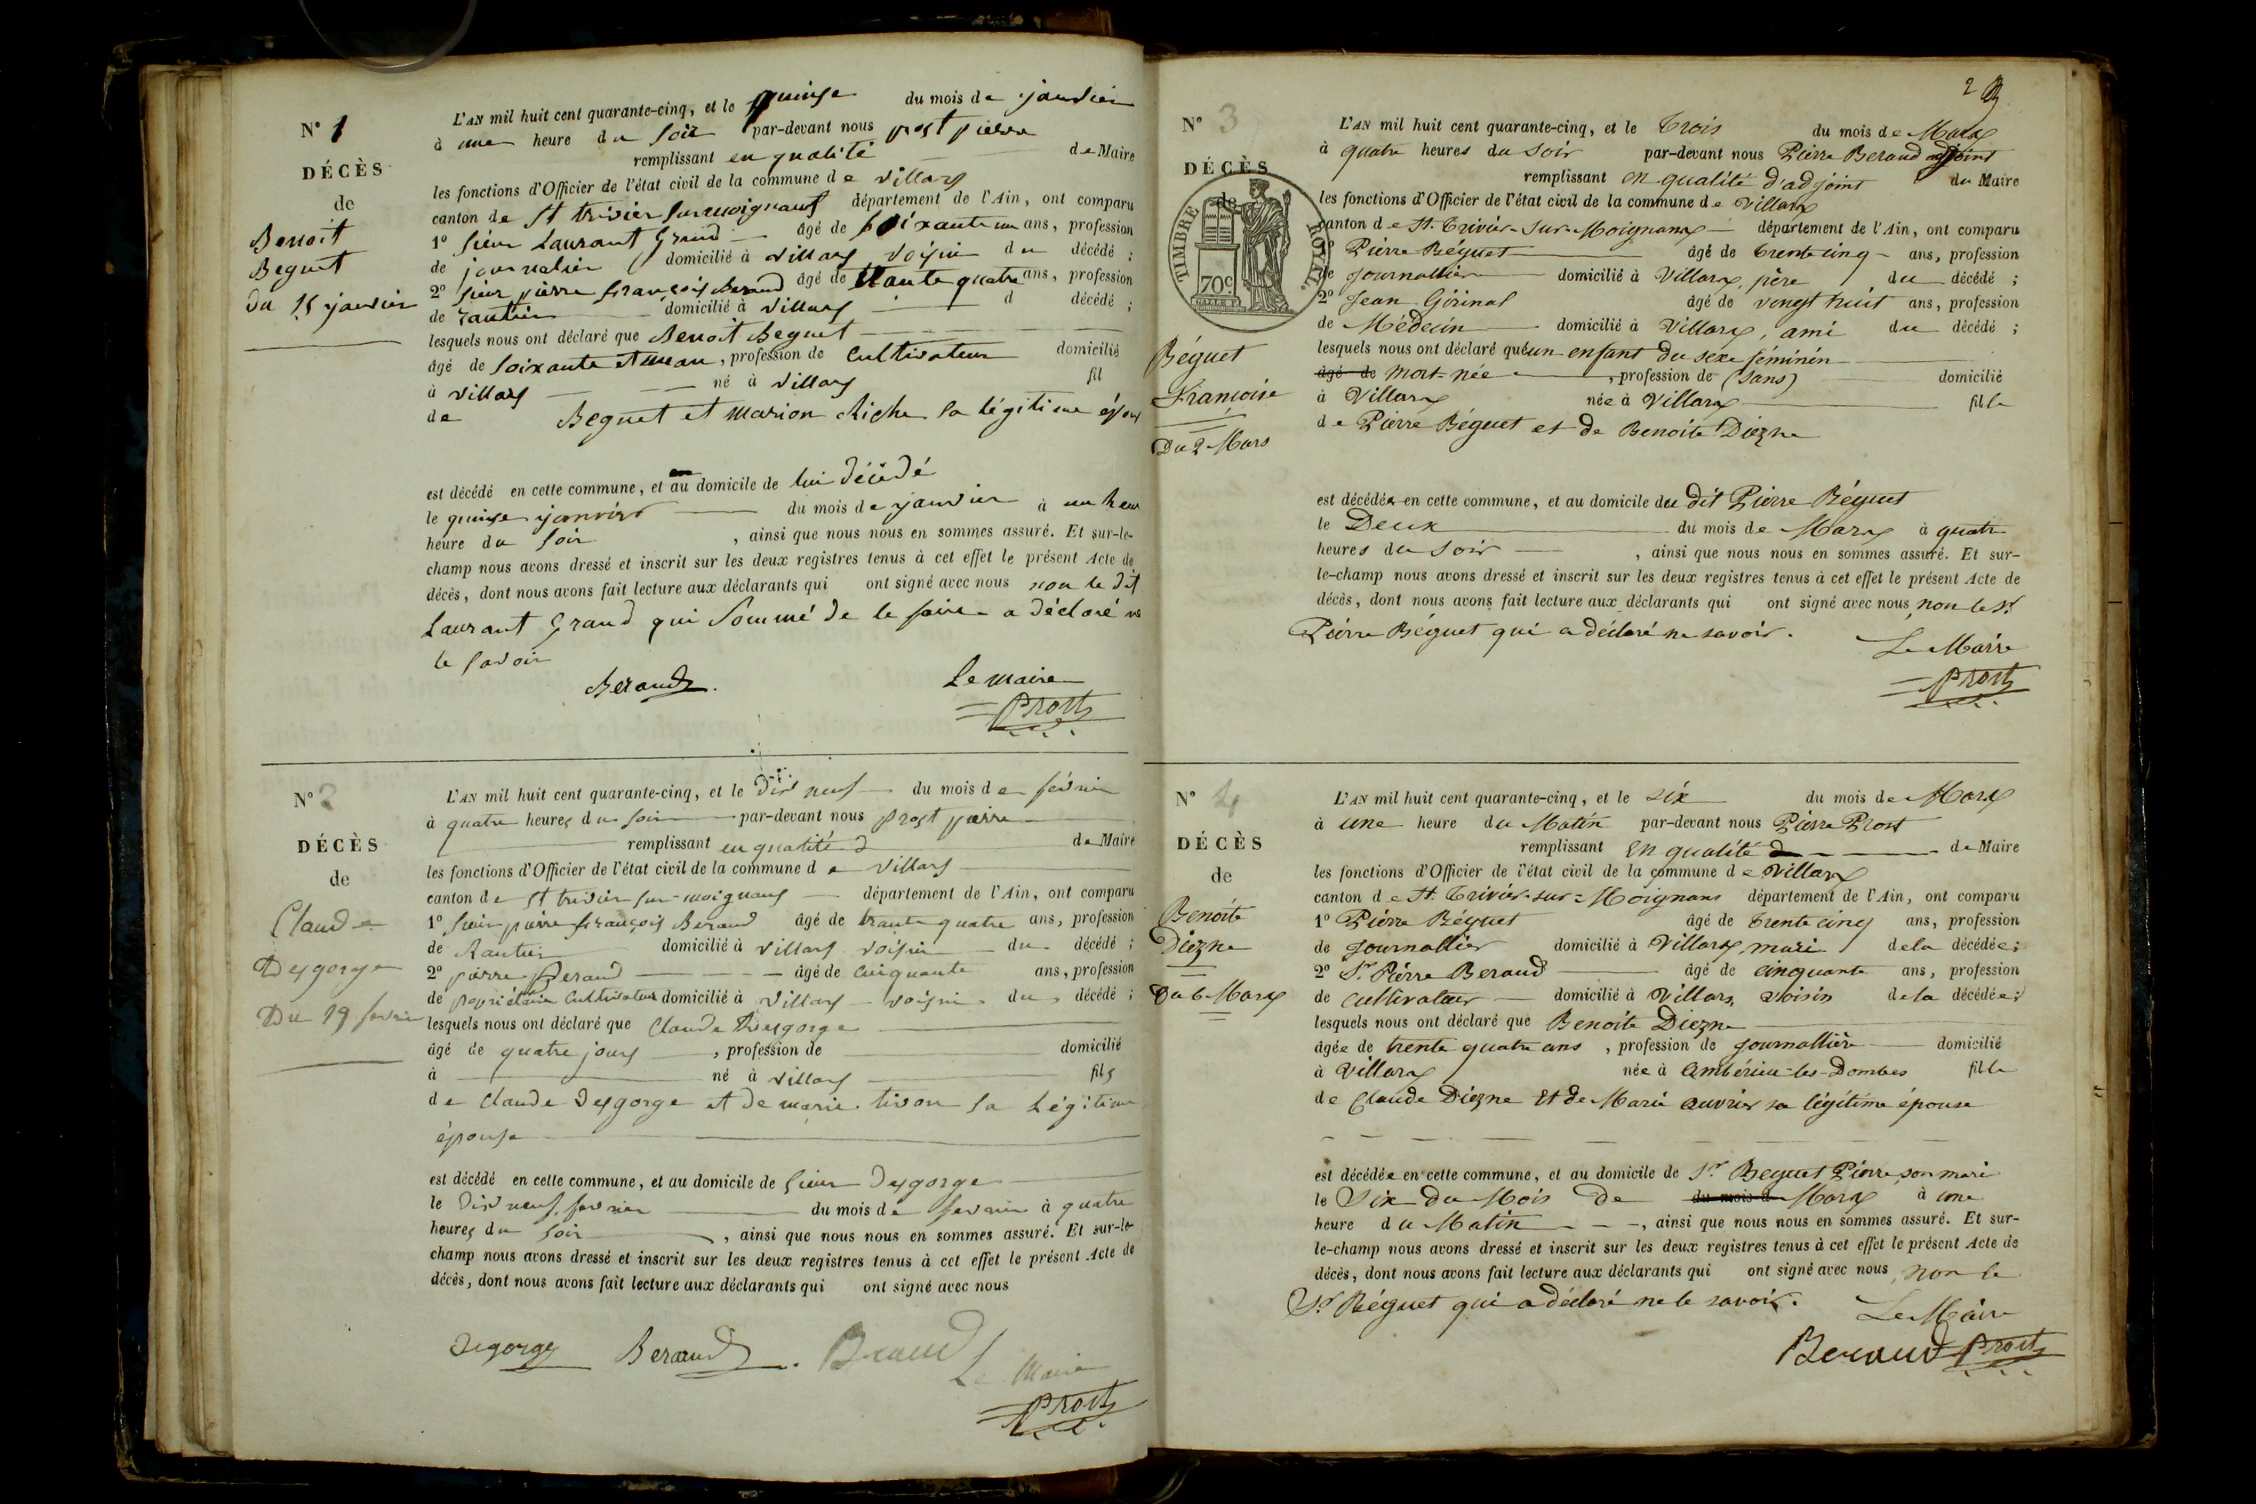 N° 1
DÉCÈS
de
Benoit
Beguet
Du 15 janvier
L'AN mil huit cent quarante-cinq, et le quinze du mois de janvier
à une heure du soir par-devant nous prost pierre
remplissant en qualité de Maire
les fonctions d'Officier de l'état civil de la commune de villars
canton de st trivier sur moignans département de l'Ain, ont comparu
1° sieur Laurant Grand âgé de soixante un ans, profession
de journalier domicilié à villars voisin du décédé ;
2° sieur pierre françois Beraud âgé de trante quatre ans, profession
de rantier domicilié à villars d décédé ;
lesquels nous ont déclaré que Benoit Beguet
âgé de soixante et un an, profession de cultivateur domicilié
à villars né à villars fil
de Beguet et marion Riche sa légitime épous
est décédé en cette commune, et au domicile de lui décédé
le quinze janvier du mois de janvier à un heur
heure du soir, ainsi que nous nous en sommes assuré. Et sur-le-
champ nous avons dressé et inscrit sur les deux registres tenus à cet effet le présent Acte de
décès, dont nous avons fait lecture aux déclarants qui ont signé avec nous non le dit
Laurant Grand qui sommé de le faire a déclaré ne
le savoir
Beraud
Le maire
Prost
N° 2
DÉCÈS
de
Claude
Desgorge
Du 19 fevrier
L'AN mil huit cent quarante-cinq, et le dix neuf du mois de février
à quatre heures du soir par-devant nous prost pierre
remplissant en qualité d de Maire
les fonctions d'Officier de l'état civil de la commune de villars
canton de st trivier sur-moignans département de l'Ain, ont comparu
1° sieur pierre françois Beraud âgé de trante quatre ans, profession
de Rantier domicilié à villars voisin du décédé ;
2° pierre Beraud âgé de cinquante ans, profession
de propriétaire cultivateur domicilié à villars voisin du décédé ;
lesquels nous ont déclaré que Claude Desgorge
âgé de quatre jours, profession de domicilié
à né à villars fils
de Claude Desgorge et de marie tison sa légitime
épouse
est décédé en cette commune, et au domicile de sieur Desgorge
le dix neuf fevrier du mois de fevrier à quatre
heures du soir, ainsi que nous nous en sommes assuré. Et sur-le-
champ nous avons dressé et inscrit sur les deux registres tenus à cet effet le présent Acte de
décès, dont nous avons fait lecture aux déclarants qui ont signé avec nous
Degorge Beraud Beraud
Le Maire
Prost
2
N° 3
DÉCÈS
de
TIMBRE ROYAL.
70c
Béguet
Françoise
Du 2 Mars
L'AN mil huit cent quarante-cinq, et le Trois du mois de Mars
à quatre heures du soir par-devant nous Pierre Beraud adjoint
remplissant en qualité d'adjoint du Maire
les fonctions d'Officier de l'état civil de la commune de Villars
canton de St. Trivier-sur-Moignans département de l'Ain, ont comparu
1° Pierre Béguet âgé de trente cinq ans, profession
de Journallier domicilié à Villars, père du décédé ;
2° Jean Gérinal âgé de vingt huit ans, profession
de Médecin domicilié à Villars, ami du décédé ;
lesquels nous ont déclaré qu'un enfant du sexe féminin
âgé de mort-née, profession de (sans) domicilié
à Villars née à Villars fille
de Pierre Béguet et de Benoite Diezne
est décédée en cette commune, et au domicile du dit Pierre Béguet
le Deux du mois de Mars à quatre
heures du soir, ainsi que nous nous en sommes assuré. Et sur-
le-champ nous avons dressé et inscrit sur les deux registres tenus à cet effet le présent Acte de
décès, dont nous avons fait lecture aux déclarants qui ont signé avec nous, non le Sr.
Pierre Béguet qui a déclaré ne savoir.
Le Maire
Prost
N° 4
DÉCÈS
de
Benoite
Diezne
Du 6 Mars
L'AN mil huit cent quarante-cinq, et le six du mois de Mars
à une heure du Matin par-devant nous Pierre Prost
remplissant en qualité de Maire
les fonctions d'Officier de l'état civil de la commune de Villars
canton de St. Trivier-sur-Moignans département de l'Ain, ont comparu
1° Pierre Béguet âgé de trente cinq ans, profession
de Journallier domicilié à Villars, mari de la décédée ;
2° Sr. Pierre Beraud âgé de cinquante ans, profession
de cultivateur domicilié à Villars, voisin de la décédée ;
lesquels nous ont déclaré que Benoite Diezne
âgée de trente quatre ans, profession de Journallière domicilié
à Villars née à Ambérieu-les-Dombes fille
de Claude Diezne et de Marie ouvrier sa légitime épouse
est décédée en cette commune, et au domicile de Sr. Beguet Pierre, son mari
le Six du Mois de du mois d Mars à une
heure du Matin, ainsi que nous nous en sommes assuré. Et sur-
le-champ nous avons dressé et inscrit sur les deux registres tenus à cet effet le présent Acte de
décès, dont nous avons fait lecture aux déclarants qui ont signé avec nous, non le
Sr. Béguet qui a déclaré ne le savoir.
Le Maire
Beraud Prost